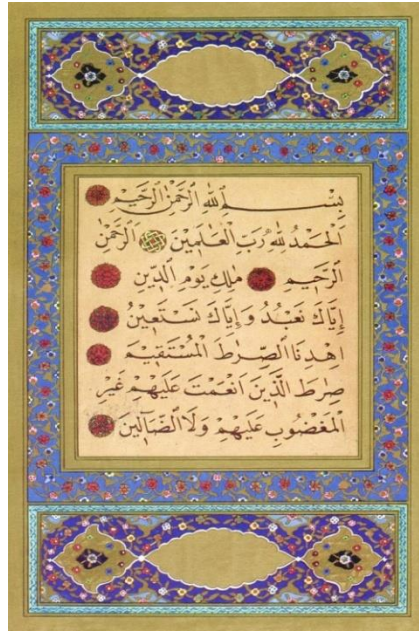 بِسْمِ اللهِ الرَّحْمٰنِ الرَّحٖيمِ
اَلْحَمْدُ لِلهِ رَبِّ الْعَالَمٖينَ اَلرَّحْمٰنِ
الرَّحٖيمِ مَالِكِ يَوْمِ الدّٖينِ
اِيَّاكَ نَعْبُدُ وَاِيَّاكَ نَسْتَعٖينُ
اِهْدِنَا الصِّرَاطَ الْمُسْتَقٖيمَ
صِرَاطَ الَّذٖينَ اَنْعَمْتَ عَلَيْهِمْ غَيْرِ
الْمَغْضُوبِ عَلَيْهِمْ وَلَا الضَّٓالّٖينَ